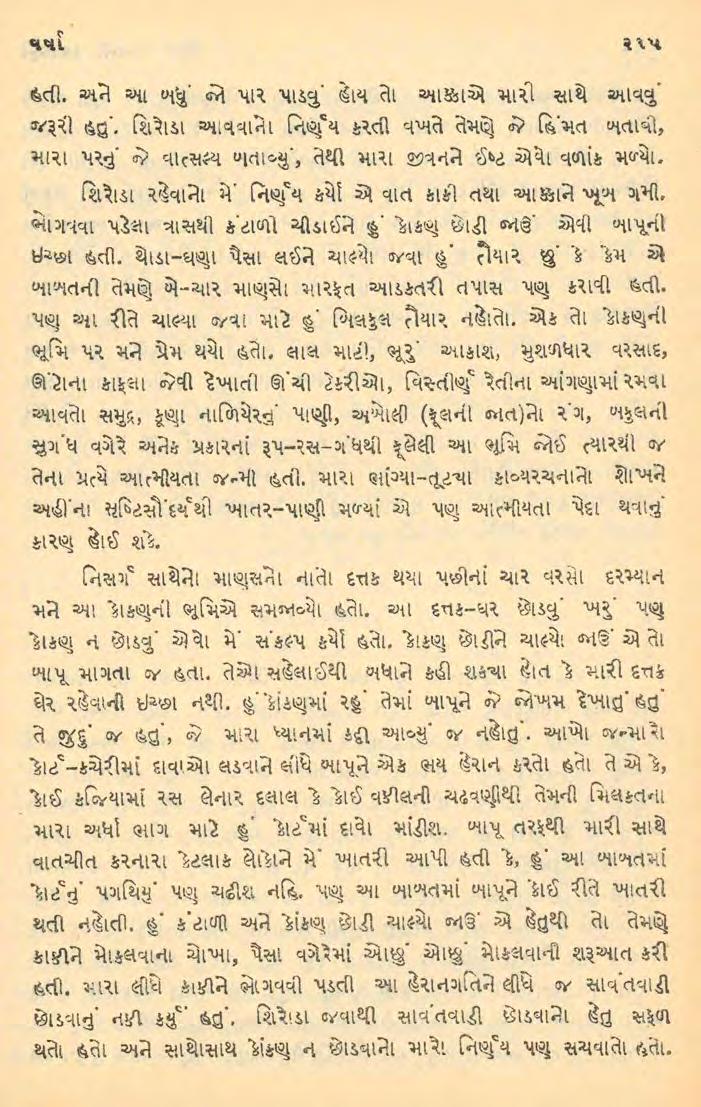 વર્ષા ૨૧૫
હતી. અને આ બધું જો પાર પાડવું હોય તો આક્કાએ મારી સાથે આવવું
જરૂરી હતું. શિરોડા આવવાનો નિર્ણય કરતી વખતે તેમણે જે હિંમત બતાવી,
મારા પરનું જે વાત્સલ્ય બતાવ્યું, તેથી મારા જીવનને ઈષ્ટ એવો વળાંક મળ્યો.
શિરોડા રહેવાનો મેં નિર્ણય કર્યો એ વાત કાકી તથા આક્કાને ખૂબ ગમી.
ભોગવવા પડેલા ત્રાસથી કંટાળી ચીડાઈને હું કોકણ છોડી જાઉં એવી બાપૂની
ઇચ્છા હતી. થોડા-ઘણા પૈસા લઈને ચાલ્યો જવા હું તૈયાર છું કે કેમ એ
બાબતની તેમણે બે-ચાર માણસો મારફત આડકતરી તપાસ પણ કરાવી હતી.
પણ આ રીતે ચાલ્યા જવા માટે હું બિલકુલ તૈયાર નહોતો. એક તો કોકણની
ભૂમિ પર મને પ્રેમ થયો હતો. લાલ માટી, ભૂરું આકાશ, મુશળધાર વરસાદ,
ઊંટોના કાફલા જેવી દેખાતી ઊંચી ટેકરીઓ, વિસ્તીર્ણ રેતીના આંગણામાં રમવા
આવતો સમુદ્ર, કૂણા નાળિયેરનું પાણી, અબોલી (ફૂલની જાત)નો રંગ, બકુલની
સુગંધ વગેરે અનેક પ્રકારનાં રૂપ–રસ–ગંધથી ફૂલેલી આ ભૂમિ જોઈ ત્યારથી જ
તેના પ્રત્યે આત્મીયતા જન્મી હતી. મારા ભાંગ્યા-તૂટ્યા કાવ્યરચનાનો શોખને
અહીંના સૃષ્ટિસૌંદર્યથી ખાતર-પાણી મળ્યાં એ પણ આત્મીયતા પેદા થવાનું
કારણ હોઈ શકે.
નિસર્ગ સાથેનો માણસનો નાતો દત્તક થયા પછીનાં ચાર વરસો દરમ્યાન
મને આ કોકણની ભૂમિએ સમજાવ્યો હતો. આ દત્તક-ઘર છોડવું ખરું પણ
કોકણ ન છોડવું એવો મેં સંકલ્પ કર્યો હતો. કોકણ છોડીને ચાલ્યો જાઉં એ તો
બાપૂ માગતા જ હતા. તેઓ સહેલાઈથી બધાને કહી શકયા હોત કે મારી દત્તક
ઘેર રહેવાની ઇચ્છા નથી. હું કોંકણમાં રહું તેમાં બાપૂને જે જોખમ દેખાતું હતું
તે જુદું જ હતું, જે મારા ધ્યાનમાં કદી આવ્યું જ નહોતું. આખો જન્મારો
કોર્ટ–કચેરીમાં દાવાઓ લડવાને લીધે બાપૂને એક ભય હેરાન કરતો હતો તે એ કે,
કોઈ કજિયામાં રસ લેનાર દલાલ કે કોઈ વકીલની ચઢવણીથી તેમની મિલકતના
મારા અર્ધા ભાગ માટે હું કોર્ટમાં દાવો માંડીશ. બાપૂ તરફથી મારી સાથે
વાતચીત કરનારા કેટલાક લોકોને મેં ખાતરી આપી હતી કે, હું આ બાબતમાં
કોર્ટનું પગથિયું પણ ચઢીશ નહિ. પણ આ બાબતમાં બાપૂને કોઈ રીતે ખાતરી
થતી નહોતી. હું કંટાળી અને કોંકણ છોડી ચાલ્યો જાઉં એ હેતુથી તો તેમણે
કાકીને મોકલવાના ચોખા, પૈસા વગેરેમાં ઓછું ઓછું મોકલવાની શરૂઆત કરી
હતી. મારા લીધે કાકીને ભોગવવી પડતી આ હેરાનગતિને લીધે જ સાવંતવાડી
છોડવાનું નકી કર્યું હતું. શિરોડા જવાથી સાવંતવાડી છોડવાનો હેતુ સફળ
થતો હતો અને સાથોસાથ કોંકણ ન છોડવાનો મારો નિર્ણય પણ સચવાતો હતો.